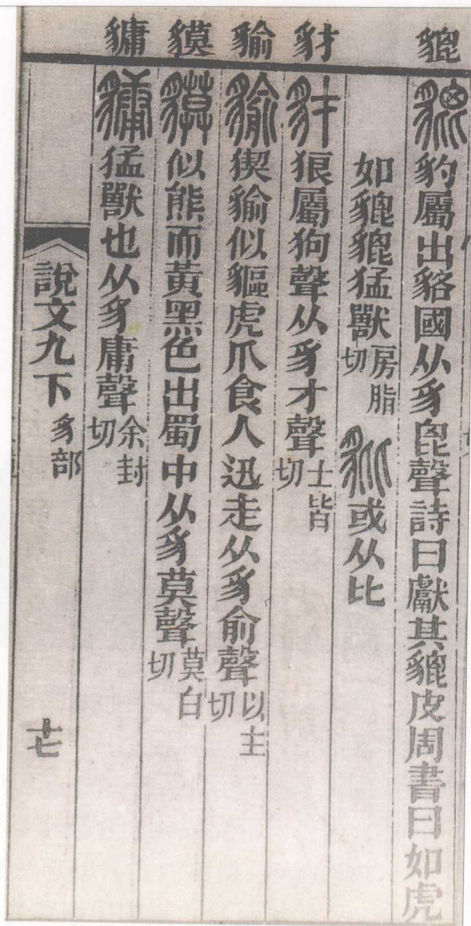 貔 貔豹屬出貉國从豸𣬉聲詩曰獻其貔皮周書曰如虎
如貔貔猛獸房脂切 豼或从比
豺 豺狼屬狗聲从豸才聲士皆切
貐 貐猰貐似貙虎爪食人迅走从豸俞聲以主切
貘 貘似熊而黃黑色出蜀中从豸莫聲莫白切
猛獸也从豸庸聲余封切
說文九下 豸部 十七